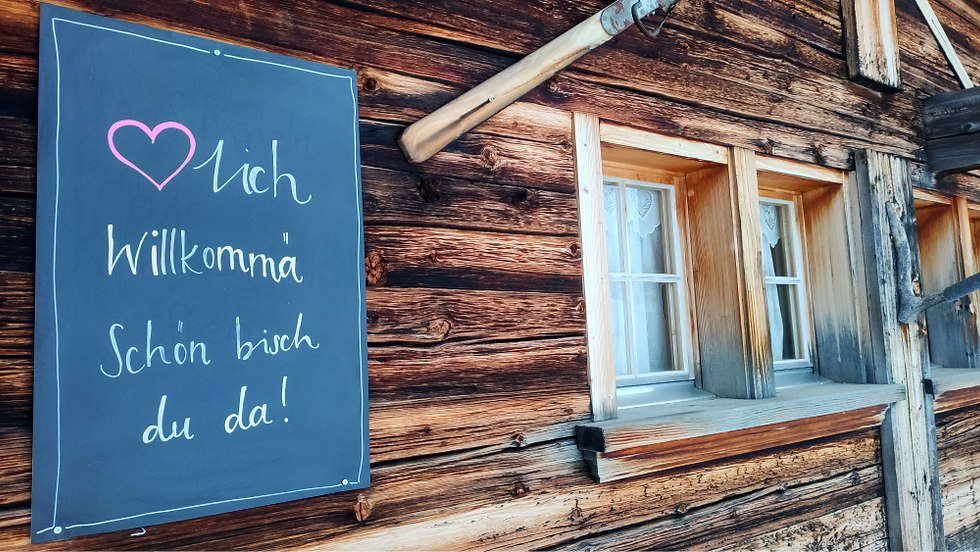 ♡lich
Willkommä
Schön bisch
du da!